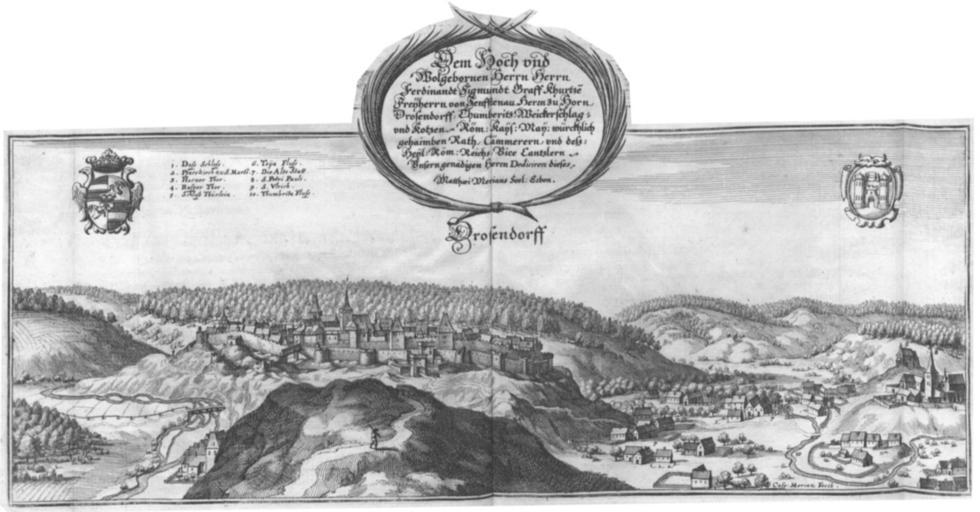 Dem Hoch vnd
Wolgebornen Herrn Herrn
Ferdinandt Sigmundt Graff Khurtze
Freyherrn von Senfftenau Herrn zu Horn
Drosendorff Thumberits Weickerschlag
vnd Kotzen Röm: Kays: May: würcklich
gehaimben Rath, Cammerern vnd deß:
Heyl: Röm: Reichs Vice Cantzlern
Unsern genädigen Herrn Dediciren dieses
Matthæi Merians Seel: Erben.
Drosendorff
1. Das Schloss.
2. Pfarrkirch zu S. Martī.
3. Horner Thor.
4. Raspor Thor.
5. Schloss Thürlein.
6. Teja Fluss.
7. Die Alte Statt
8. S. Petri Pauli.
9. S. Vlrich.
10. Thumbritz Fluss.
Casp: Merian Fecit.